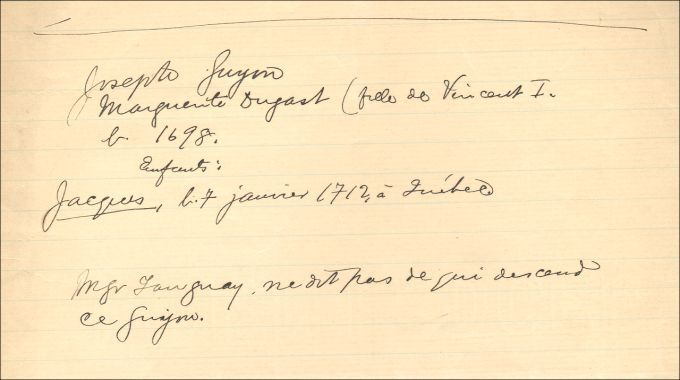 Joseph Guyon
Marguerite Dugast (fille de Vincent I.
b. 1698.
Enfants:
Jacques, b. 7 janvier 1712, à Québec
Mgr Tanguay ne dit pas de qui descend
ce Guyon.